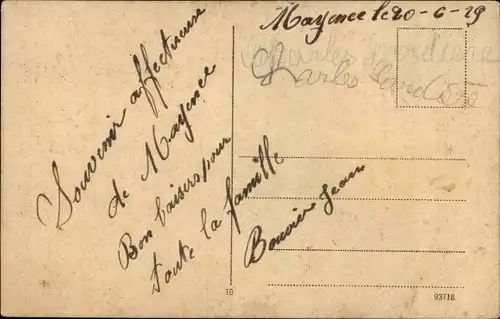 Mayence le 20-6-19
Charles Cardière
Charles Card
Souvenir affectueuse
de Mayence
Bon baisers pour
toute la famille
Bouvier Jean
10
93718